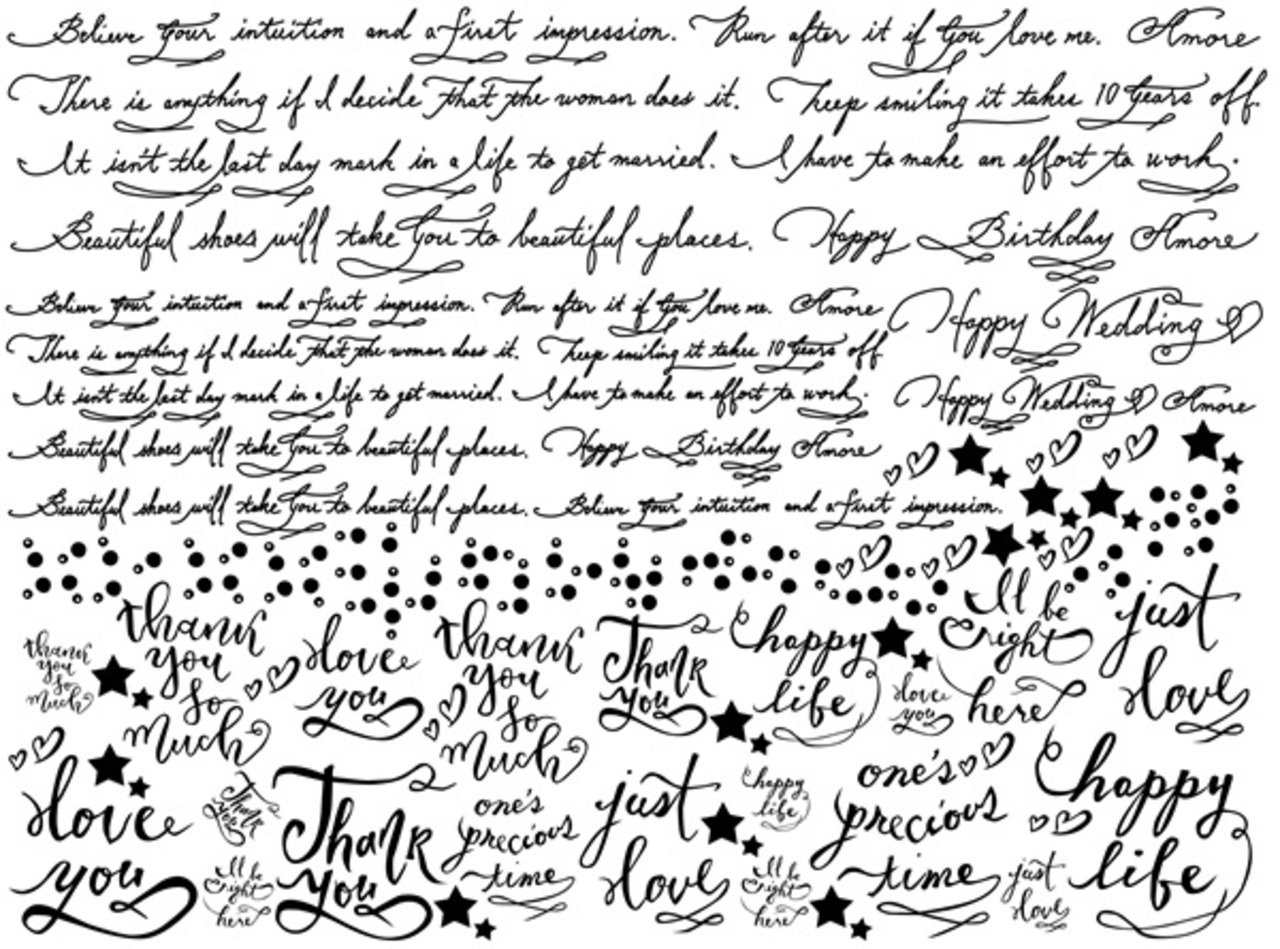 Believe your intuition and a first impression. Run after it if you love me. Amore
There is anything if I decide that the woman does it. Keep smiling it takes 10 years off.
It isn't the last day mark in a life to get married. I have to make an effort to work.
Beautiful shoes will take you to beautiful places. Happy Birthday Amore
Believe your intuition and a first impression. Run after it if you love me. Amore
Happy Wedding
There is anything if I decide that the woman does it. Keep smiling it takes 10 years off.
It isn't the last day mark in a life to get married. I have to make an effort to work.
Happy Wedding Amore
Beautiful shoes will take you to beautiful places. Happy Birthday Amore
Beautiful shoes will take you to beautiful places. Believe your intuition and a first impression.
thank
you
so
much
thank
you
so
much
love
you
thank
you
so
much
Thank
you
happy
life
love
you
I'll be
right
here
just
love
love
you
Thank
you
I'll be
right
here
Thank
you
one's
precious
time
just
love
happy
life
I'll be
right
here
one's
precious
time
just
love
happy
life